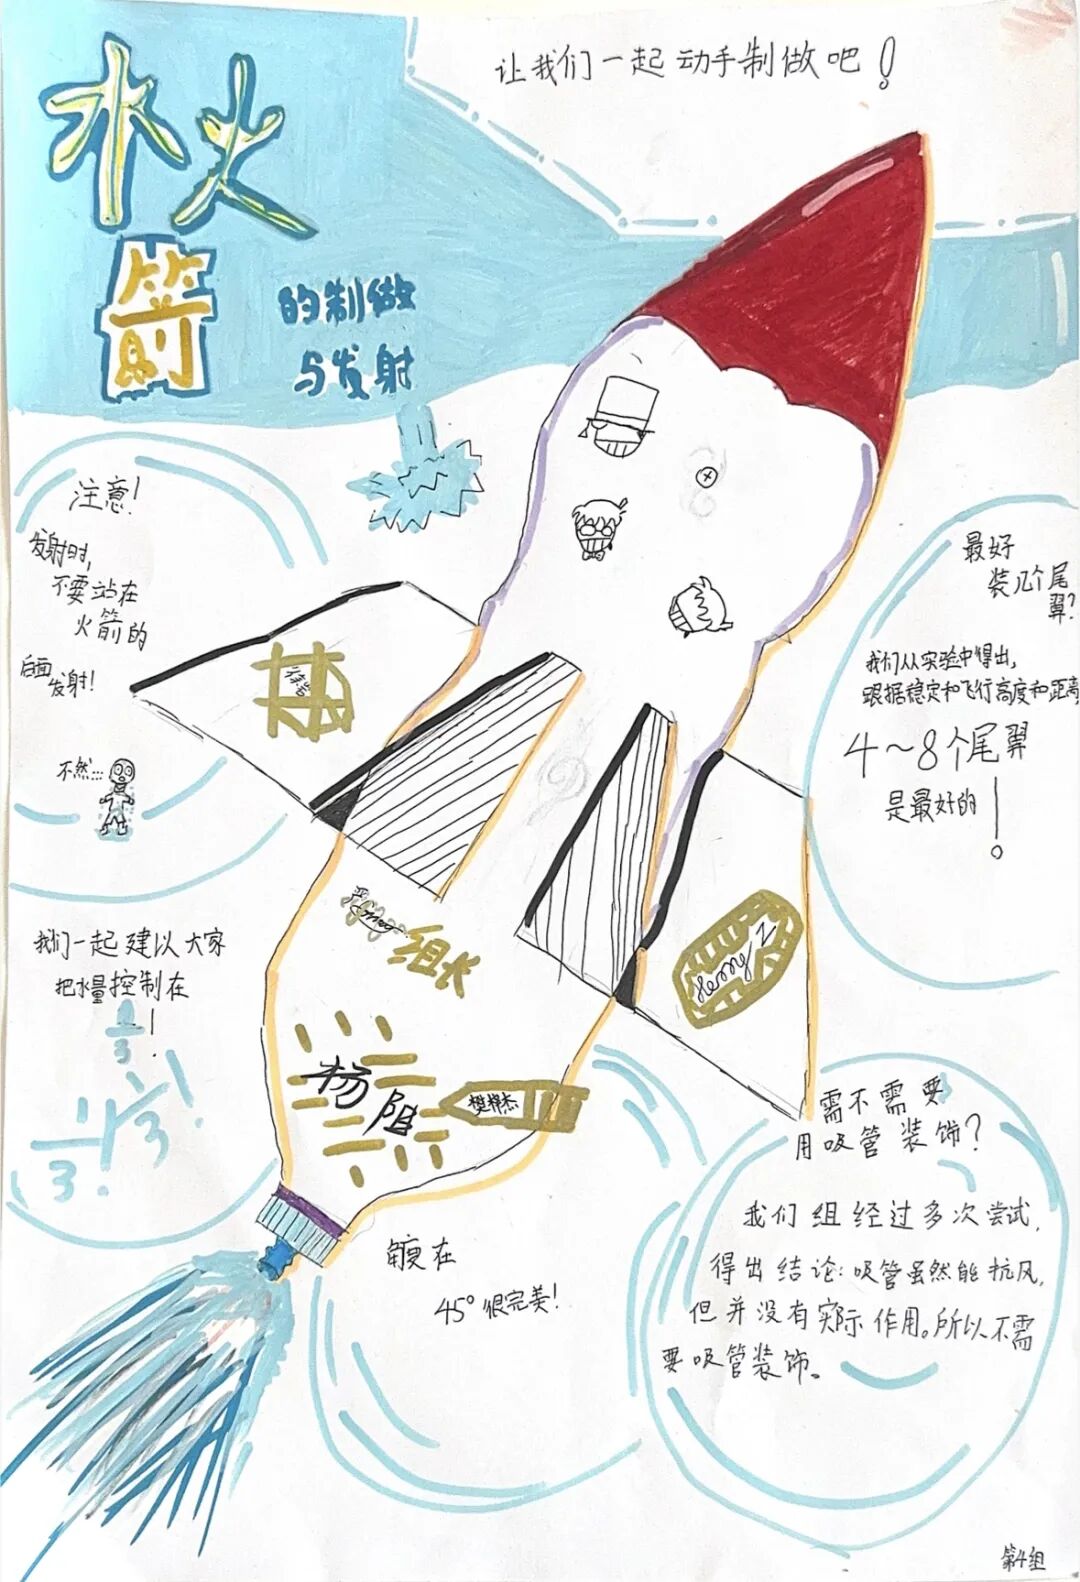 让我们一起动手制做吧！
水火
箭
的制做
与发射
注意！
发射时，
不要站在
火箭的
后面
发射！
不然...
最好
装几个尾
翼？
我们从实验中得出，
跟据稳定和飞行高度和距离
4～8个尾翼
是最好的！
我们一起建以大家
把水量控制在
1/3！
1/3！
组长
杨阳
Henry Z
需不需要
用吸管装饰？
我们组经过多次尝试，
得出结论：吸管虽然能抗风，
但并没有实际作用。所以不需
要吸管装饰。
在
45°很完美！
第4组